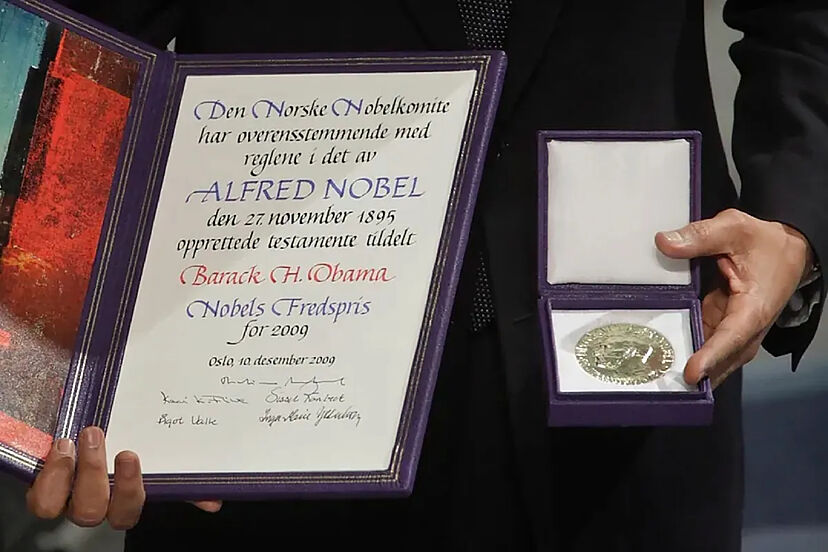 Den Norske Nobelkomite
har overensstemmende med
reglene i det av
ALFRED NOBEL
den 27. november 1895
opprettede testamente tildelt
Barack H. Obama
Nobels Fredspris
for 2009
Oslo, 10. desember 2009
Ågot Valle